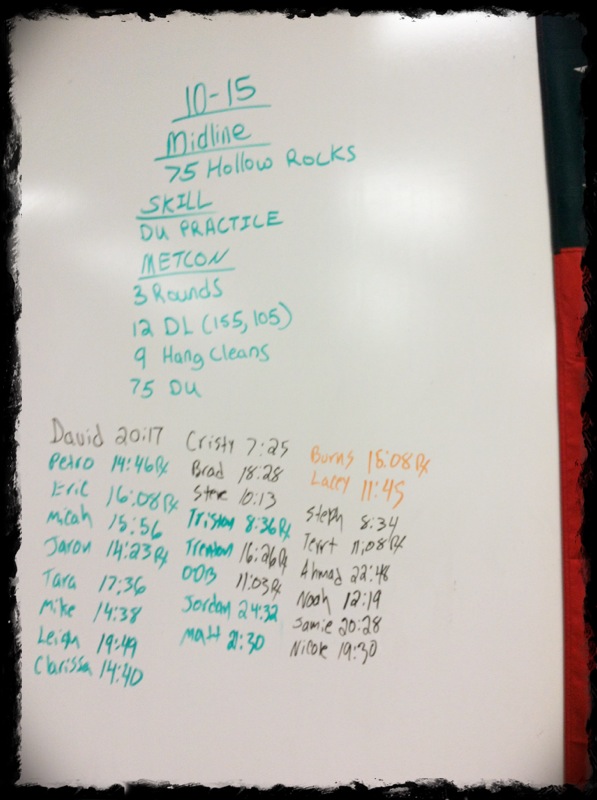 10-15
Midline
75 Hollow Rocks
SKILL
DU PRACTICE
METCON
3 Rounds
12 DL (155, 105)
9 Hang Cleans
75 DU
David 20:17
Petro 14:46 Rx
Eric 16:08 Rx
Micah 15:56
Jaron 14:23 Rx
Tara 17:36
Mike 14:38
Leigh 19:49
Clarissa 14:40
Cristy 7:25
Brad 18:28
Steve 10:13
Tristan 8:36 Rx
Trenton 16:26 Rx
ODB 11:03 Rx
Jordan 24:32
Matt 21:30
Burns 15:08 Rx
Lacey 11:45
Steph 8:34
Terri 11:08 Rx
Ahmad 22:48
Noah 12:19
Jamie 20:28
Nicole 19:30